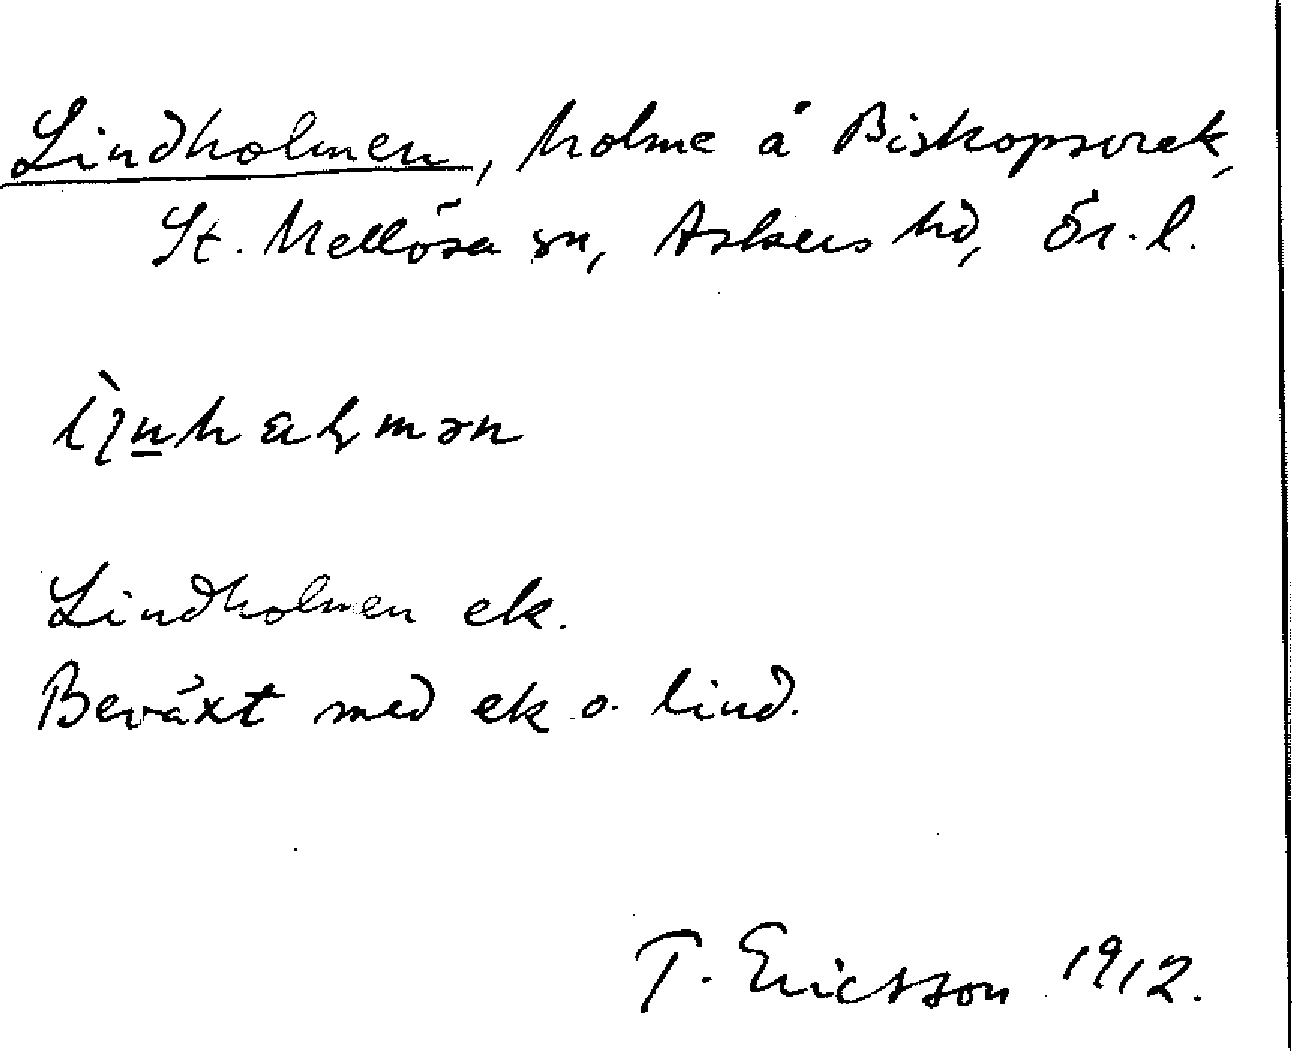 Lindholmen, holme å Biskopsvrak,
St. Mellösa sn, Askers hd, Ör. l.
Lindholmen ek.
Beväxt med ek o. lind.
T. Ericsson 1912.